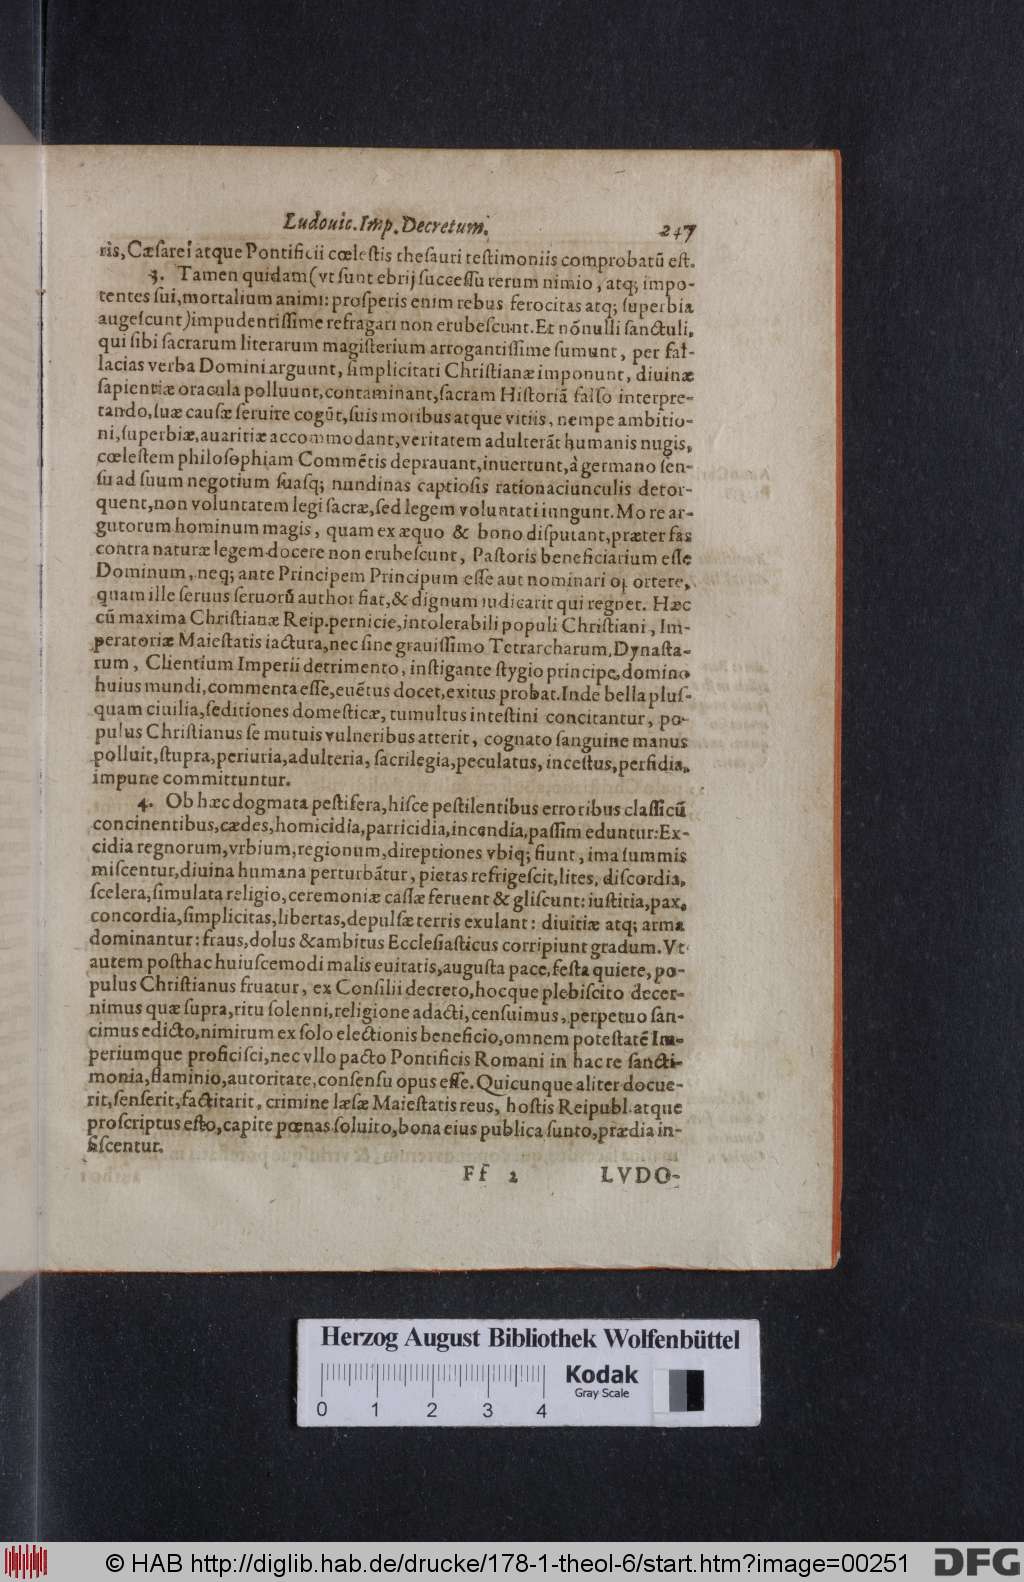 Ludouic. Imp. Decretum. 247
ris, Cæſarei atque Pontificii cœleſtis theſauri teſtimoniis comprobatū eſt.
3. Tamen quidam (vt ſunt ebrij ſucceſſu rerum nimio, atq; impo-
tentes ſui, mortalium animi: proſperis enim rebus ferocitas atq; ſuperbia
augeſcunt) impudentiſſime refragari non erubeſcunt. Et nōnulli ſanctuli,
qui ſibi ſacrarum literarum magiſterium arrogantiſſime ſumunt, per fal-
lacias verba Domini arguunt, ſimplicitati Chriſtianæ imponunt, diuinæ
ſapientiæ oracula polluunt, contaminant, ſacram Hiſtoriā falſo interpre-
tando, ſuæ cauſæ ſeruire cogūt, ſuis moribus atque vitiis, nempe ambitio-
ni, ſuperbiæ, auaritiæ accommodant, veritatem adulterāt humanis nugis,
cœleſtem philoſophiam Commētis deprauant, inuertunt, à germano ſen-
ſu ad ſuum negotium ſuaſq; nundinas captioſis rationaciunculis detor-
quent, non voluntatem legi ſacræ, ſed legem voluntati iungunt. More ar-
gutorum hominum magis, quam ex æquo & bono diſputant, præter fas
contra naturæ legem docere non erubeſcunt, Paſtoris beneficiarium eſſe
Dominum, neq; ante Principem Principum eſſe aut nominari oportere,
quam ille ſeruus ſeruorū author fiat, & dignum iudicarit qui regnet. Hæc
cū maxima Chriſtianæ Reip. pernicie, intolerabili populi Chriſtiani, Im-
peratoriæ Maieſtatis iactura, nec ſine grauiſſimo Tetrarcharum, Dynaſta-
rum, Clientium Imperii detrimento, inſtigante ſtygio principe, domino
huius mundi, commenta eſſe, euētus docet, exitus probat. Inde bella pluſ-
quam ciuilia, ſeditiones domeſticæ, tumultus inteſtini concitantur, po-
pulus Chriſtianus ſe mutuis vulneribus atterit, cognato ſanguine manus
polluit, ſtupra, periuria, adulteria, ſacrilegia, peculatus, inceſtus, perfidia,
impune committuntur.
4. Ob hæc dogmata peſtifera, hiſce peſtilentibus erroribus claſſicū
concinentibus, cædes, homicidia, parricidia, incendia, paſſim eduntur: Ex-
cidia regnorum, vrbium, regionum, direptiones vbiq; fiunt, ima ſummis
miſcentur, diuina humana perturbātur, pietas refrigeſcit, lites, diſcordia,
ſcelera, ſimulata religio, ceremoniæ caſſæ feruent & gliſcunt: iuſtitia, pax,
concordia, ſimplicitas, libertas, depulſæ terris exulant: diuitiæ atq; arma
dominantur: fraus, dolus & ambitus Eccleſiaſticus corripiunt gradum. Vt
autem poſthac huiuſcemodi malis euitatis, auguſta pace, feſta quiete, po-
pulus Chriſtianus fruatur, ex Conſilii decreto, hocque plebiſcito decer-
nimus quæ ſupra, ritu ſolenni, religione adacti, cenſuimus, perpetuo ſan-
cimus edicto, nimirum ex ſolo electionis beneficio, omnem poteſtatē Im-
periumque proficiſci, nec vllo pacto Pontificis Romani in hac re ſancti-
monia, flaminio, autoritate, conſenſu opus eſſe. Quicunque aliter docue-
rit, ſenſerit, factitarit, crimine læſæ Maieſtatis reus, hoſtis Reipubl. atque
proſcriptus eſto, capite pœnas ſoluito, bona eius publica ſunto, prædia in-
fiſcentur.
Ff 2 LVDO-
Herzog August Bibliothek Wolfenbüttel
Kodak
Gray Scale
0 1 2 3 4
© HAB http://diglib.hab.de/drucke/178-1-theol-6/start.htm?image=00251
DFG